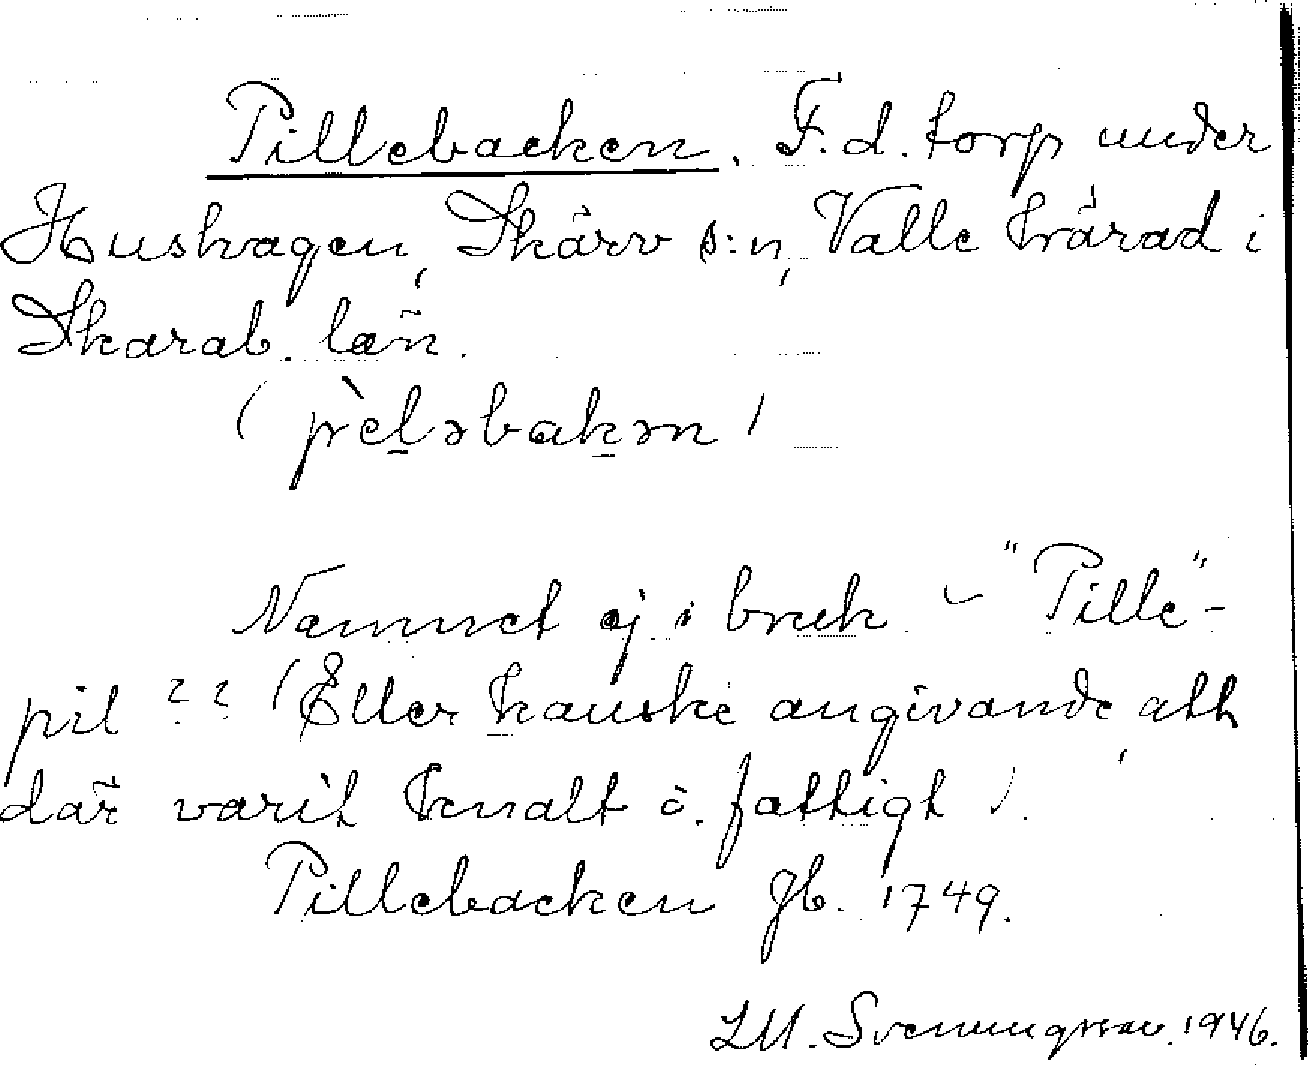 Pillebacken. F.d. torp under
Hushagen, Skärv s:n, Valle härad i
Skarab. län.
(pèləbakən)
Namnet ej i bruk - "Pille"-
pil?? (Eller kanske angivande att
där varit knalt o. fattigt).
Pillebacken Jb. 1749.
LM. Svenungsson. 1946.